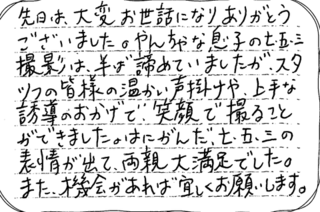 先日は、大変お世話になりありがとう
ございました。やんちゃな息子の七・五・三
撮影は、半ば諦めていましたが、スタ
ッフの皆様の温かい声掛けや、上手な
誘導のおかげで、笑顔で撮ること
ができました。はにかんだ、七・五・三の
表情が出て、両親大満足でした。
また、機会があれば宜しくお願いします。